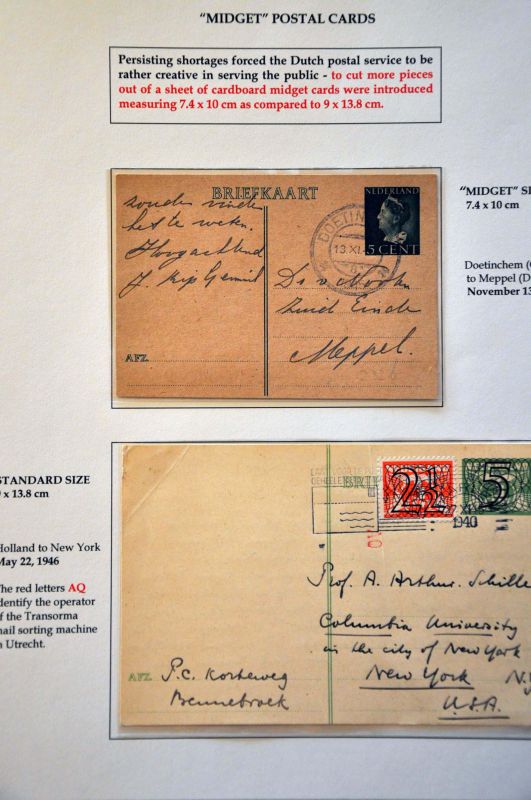 "MIDGET" POSTAL CARDS
Persisting shortages forced the Dutch postal service to be
rather creative in serving the public - to cut more pieces
out of a sheet of cardboard midget cards were introduced
measuring 7.4 x 10 cm as compared to 9 x 13.8 cm.
BRIEFKAART
NEDERLAND
5 CENT
DOETIN
13.XI
zonder
het te weten.
Hoogachtend
J.
Zuid Einde
Meppel.
AFZ.
"MIDGET" SI
7.4 x 10 cm
Doetinchem (
to Meppel (D
November 13
STANDARD SIZE
9 x 13.8 cm
Holland to New York
May 22, 1946
The red letters AQ
identify the operator
of the Transorma
mail sorting machine
in Utrecht.
BRI
2½
5
1940
Prof. A. Arthur Schille
Columbia University
in the city of New York
New York N.Y
U.S.A.
AFZ. P.C. Korteweg
Bennebroek